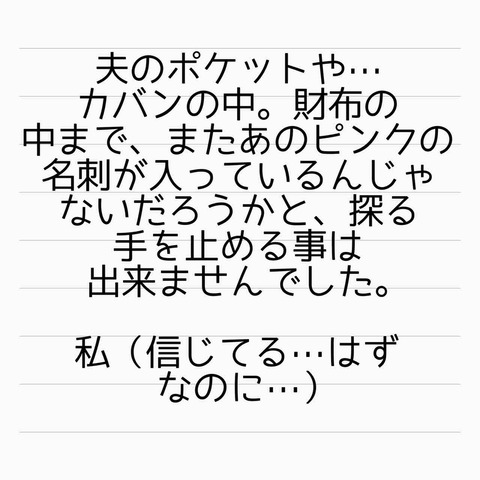 夫のポケットや…
カバンの中。財布の
中まで、またあのピンクの
名刺が入っているんじゃ
ないだろうかと、探る
手を止める事は
出来ませんでした。
私（信じてる…はず
なのに…）